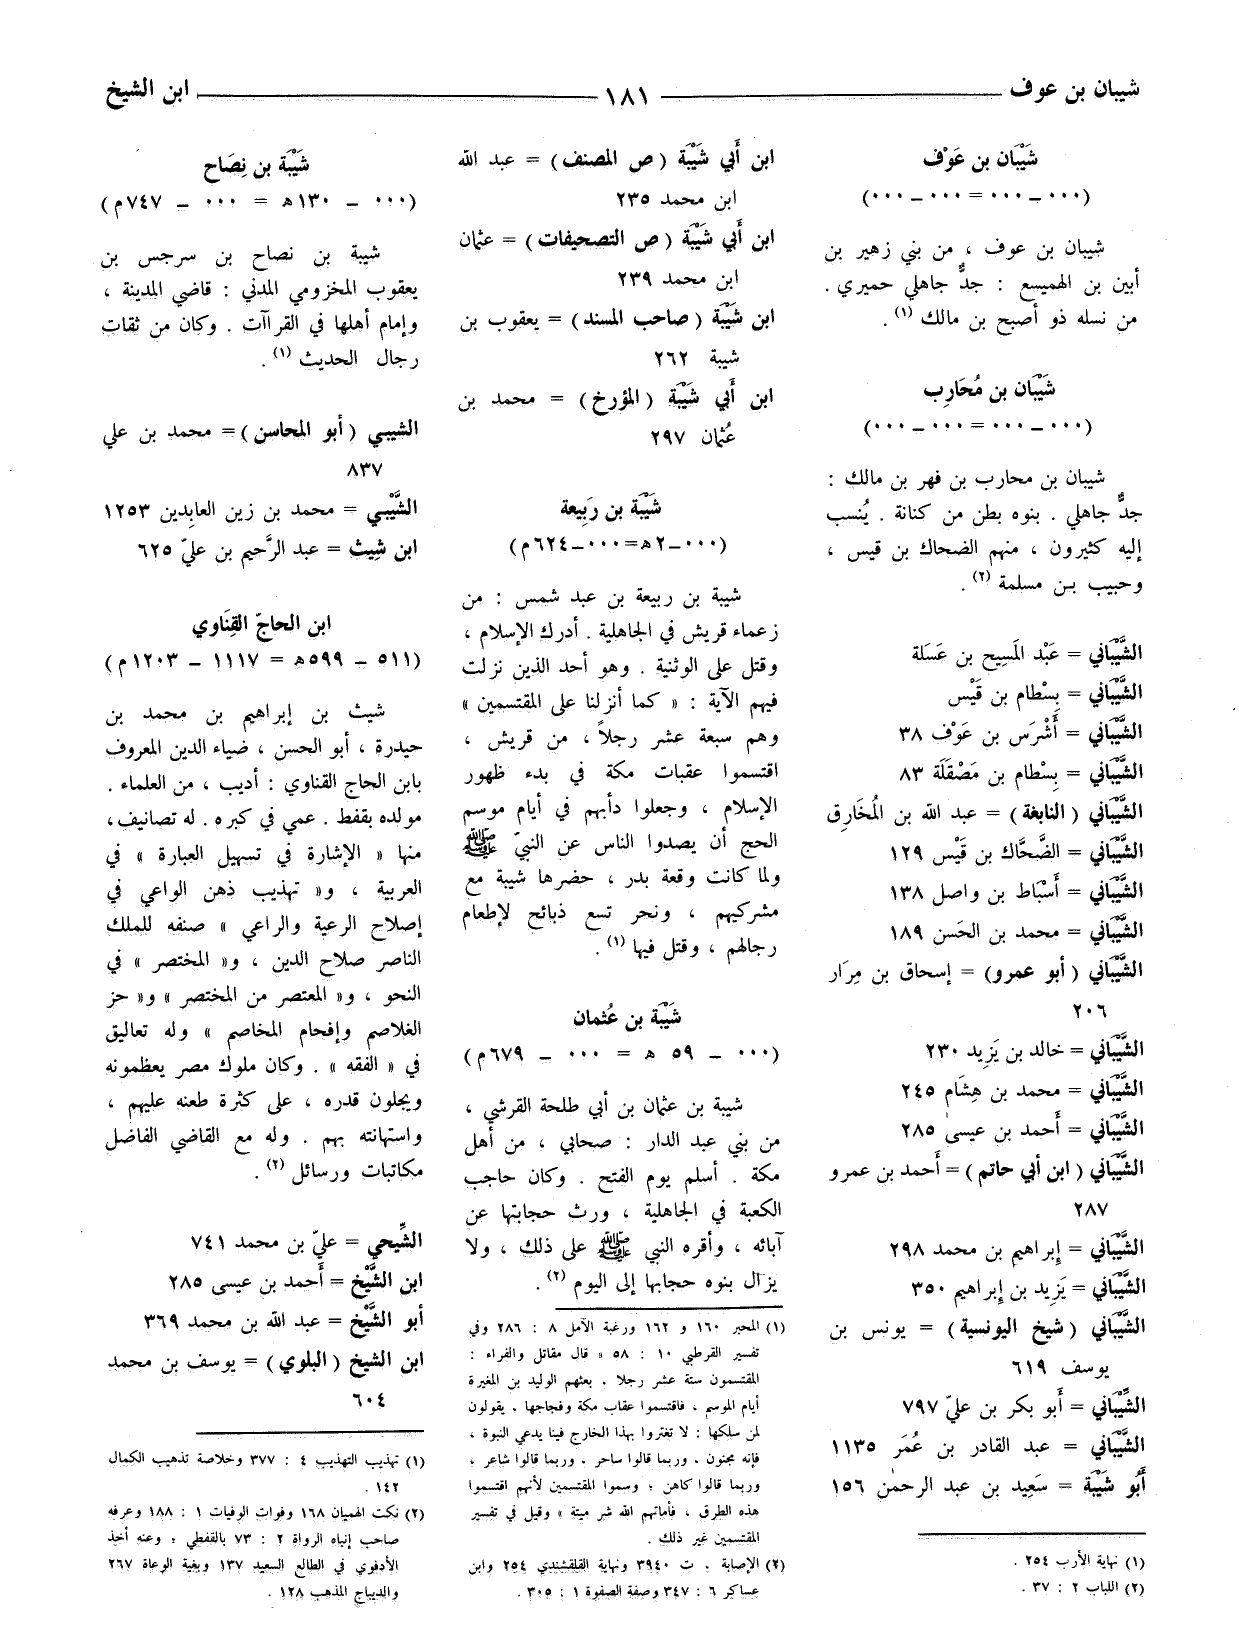 شيبان بن عوف
١٨١
ابن الشيخ
شَيْبَان بن عَوْف
(٠٠٠ ـ ٠٠٠ = ٠٠٠ ـ ٠٠٠)
شيبان بن عوف ، من بني زهير بن
أبين بن الهميسع : جدٌّ جاهلي حميري .
من نسله ذو أصبح بن مالك (١) .
شَيْبَان بن مُحَارِب
(٠٠٠ ـ ٠٠٠ = ٠٠٠ ـ ٠٠٠)
شيبان بن محارب بن فهر بن مالك :
جدٌّ جاهلي . بنوه بطن من كنانة . يُنسب
إليه كثيرون ، منهم الضحاك بن قيس ،
وحبيب بن مسلمة (٢) .
الشَّيْبَاني = عَبْد المَسِيح بن عَسَلة
الشَّيْبَاني = بِسْطام بن قَيْس
الشَّيْبَاني = أَشْرَس بن عَوْف ٣٨
الشَّيْبَاني = بِسْطام بن مَصْقَلَة ٨٣
الشَّيْبَاني (النابغة) = عبد الله بن المُخَارِق
الشَّيْبَاني = الضَّحَّاك بن قَيْس ١٢٩
الشَّيْبَاني = أَسْبَاط بن واصل ١٣٨
الشَّيْبَاني = محمد بن الحَسن ١٨٩
الشَّيْبَاني (أبو عمرو) = إسحاق بن مِرَار
٢٠٦
الشَّيْبَاني = خالد بن يَزِيد ٢٣٠
الشَّيْبَاني = محمد بن هِشَام ٢٤٥
الشَّيْبَاني = أَحمد بن عيسىٰ ٢٨٥
الشَّيْبَاني (ابن أبي حاتم) = أَحمد بن عمرو
٢٨٧
الشَّيْبَاني = إبراهيم بن محمد ٢٩٨
الشَّيْبَاني = يَزِيد بن إبراهيم ٣٥٠
الشَّيْبَاني (شيخ اليونسية) = يونس بن
يوسف ٦١٩
الشَّيْبَاني = أَبو بكر بن عليّ ٧٩٧
الشَّيْبَاني = عبد القادر بن عُمَر ١١٣٥
أَبُو شَيْبَة = سَعِيد بن عبد الرحمٰن ١٥٦
(١) نهاية الأرب ٢٥٤ .
(٢) اللباب ٢ : ٣٧ .
ابن أَبي شَيْبَة (ص المصنف) = عبد الله
ابن محمد ٢٣٥
ابن أَبي شَيْبَة (ص التصحيفات) = عثمان
ابن محمد ٢٣٩
ابن شَيْبَة (صاحب المسند) = يعقوب بن
شيبة ٢٦٢
ابن أَبي شَيْبَة (المؤرخ) = محمد بن
عُثمان ٢٩٧
شَيْبَة بن رَبِيعة
(٠٠٠ـ٢ه=٠٠٠ـ٦٢٤م)
شيبة بن ربيعة بن عبد شمس : من
زعماء قريش في الجاهلية . أدرك الإسلام ،
وقتل على الوثنية . وهو أحد الذين نزلت
فيهم الآية : « كما أنزلنا على المقتسمين »
وهم سبعة عشر رجلاً ، من قريش ،
اقتسموا عقبات مكة في بدء ظهور
الإسلام ، وجعلوا دأبهم في أيام موسم
الحج أن يصدوا الناس عن النبيّ ﷺ
ولما كانت وقعة بدر ، حضرها شيبة مع
مشركيهم ، ونحر تسع ذبائح لإطعام
رجالهم ، وقتل فيها (١) .
شَيْبَة بن عُثمان
(٠٠٠ ـ ٥٩ ه = ٠٠٠ ـ ٦٧٩م)
شيبة بن عثمان بن أبي طلحة القرشي ،
من بني عبد الدار : صحابي ، من أهل
مكة . أسلم يوم الفتح . وكان حاجب
الكعبة في الجاهلية ، ورث حجابتها عن
آبائه ، وأقره النبي ﷺ على ذلك ، ولا
يزال بنوه حجابها إلى اليوم (٢) .
(١) المحبر ١٦٠ و ١٦٢ ورغبة الآمل ٨ : ٢٨٦ وفي
تفسير القرطبي ١٠ : ٥٨ « قال مقاتل والفراء :
المقتسمون ستة عشر رجلا ، بعثهم الوليد بن المغيرة
أيام الموسم ، فاقتسموا عقاب مكة وفجاجها ، يقولون
لمن سلكها : لا تغتروا بهذا الخارج فينا يدعي النبوة ،
فإنه مجنون ، وربما قالوا ساحر ، وربما قالوا شاعر ،
وربما قالوا كاهن ؛ وسموا المقتسمين لأنهم اقتسموا
هذه الطرق ، فأماتهم الله شر ميتة » وقيل في تفسير
المقتسمين غير ذلك .
(٢) الإصابة ، ت ٣٩٤٠ ونهاية القلقشندي ٢٥٤ وابن
عساكر ٦ : ٣٤٧ وصفة الصفوة ١ : ٣٠٥ .
شَيْبَة بن نِصَاح
(٠٠٠ ـ ١٣٠ه = ٠٠٠ ـ ٧٤٧م)
شيبة بن نصاح بن سرجس بن
يعقوب المخزومي المدني : قاضي المدينة ،
وإمام أهلها في القراآت . وكان من ثقات
رجال الحديث (١) .
الشيبي (أبو المحاسن) = محمد بن علي
٨٣٧
الشَّيْبي = محمد بن زين العابِدين ١٢٥٣
ابن شِيث = عبد الرَّحيم بن عليّ ٦٢٥
ابن الحاجّ القِنَاوي
(٥١١ ـ ٥٩٩ه = ١١١٧ ـ ١٢٠٣م)
شيث بن إبراهيم بن محمد بن
حيدرة ، أبو الحسن ، ضياء الدين المعروف
بابن الحاج القناوي : أديب ، من العلماء .
مولده بقفط . عمي في كبره . له تصانيف،
منها « الإشارة في تسهيل العبارة » في
العربية ، و« تهذيب ذهن الواعي في
إصلاح الرعية والراعي » صنفه للملك
الناصر صلاح الدين ، و« المختصر » في
النحو ، و« المعتصر من المختصر » و« حز
الغلاصم وإفحام المخاصم » وله تعاليق
في « الفقه » . وكان ملوك مصر يعظمونه
ويجلون قدره ، على كثرة طعنه عليهم ،
واستهانته بهم . وله مع القاضي الفاضل
مكاتبات ورسائل (٢) .
الشِّيحي = عليّ بن محمد ٧٤١
ابن الشَّيْخ = أَحمد بن عيسى ٢٨٥
أبو الشَّيْخ = عبد الله بن محمد ٣٦٩
ابن الشيخ (البلوي) = يوسف بن محمد
٦٠٤
(١) تهذيب التهذيب ٤ : ٣٧٧ وخلاصة تذهيب الكمال
١٤٢ .
(٢) نكت الهميان ١٦٨ وفوات الوفيات ١ : ١٨٨ وعرفه
صاحب إنباه الرواة ٢ : ٧٣ بالقفطي ؛ وعنه أخذ
الأدفوي في الطالع السعيد ١٣٧ وبغية الوعاة ٢٦٧
والديباج المذهب ١٢٨ .